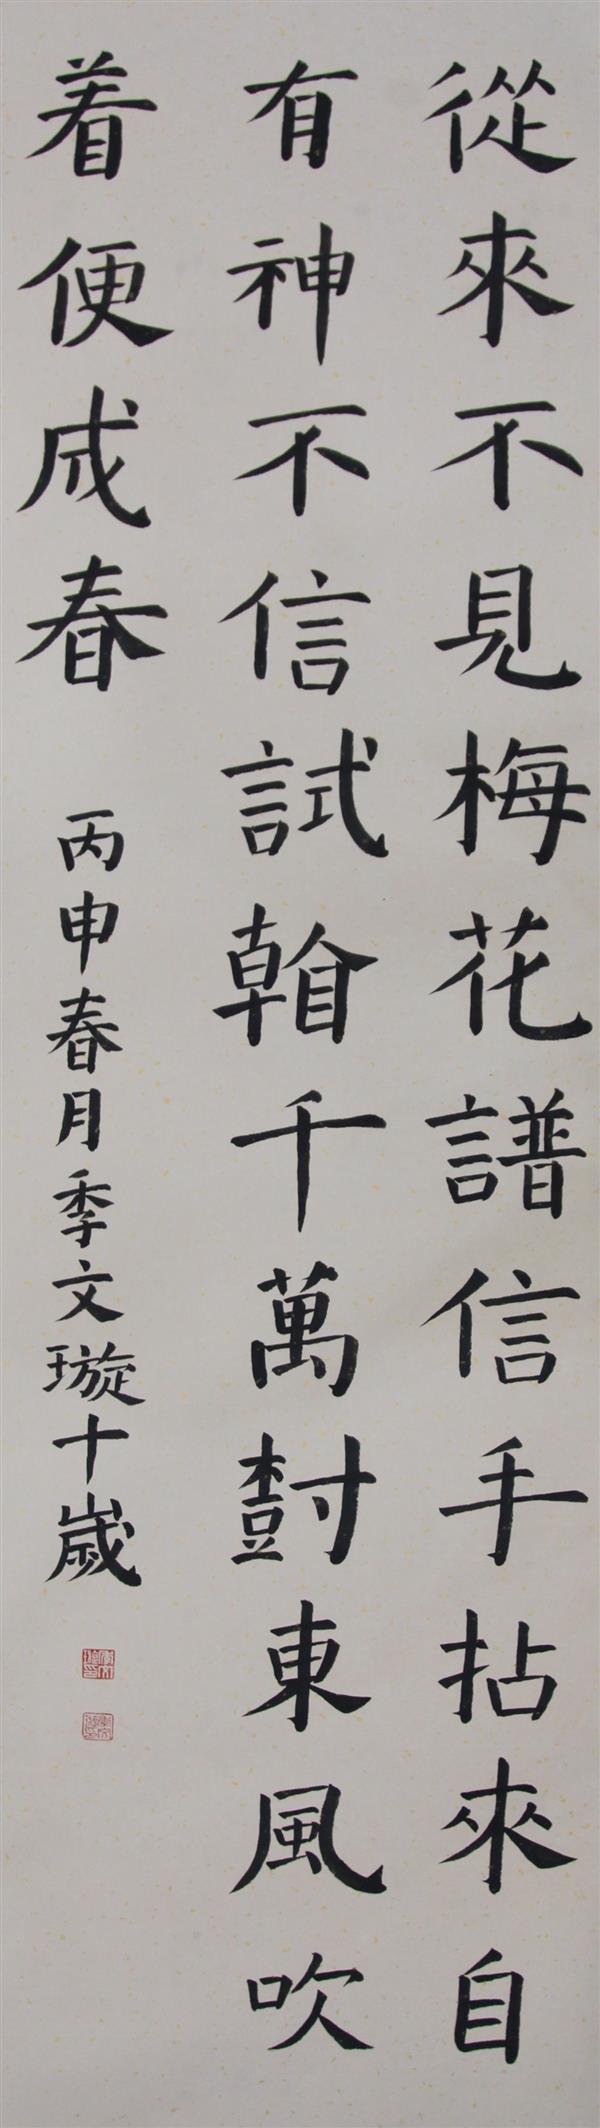 從來不見梅花譜信手拈來自
有神不信試看千萬樹東風吹
着便成春
丙申春月季文璇十歲